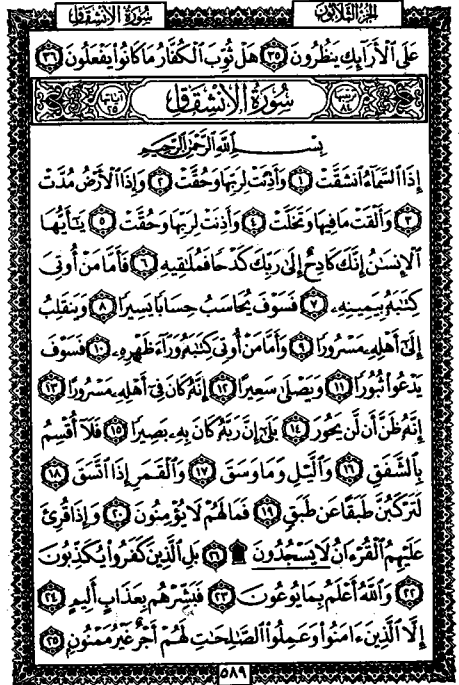 الجزء الثلاثون سُورَةُ الانشِقَاق
عَلَى ٱلْأَرَآئِكِ يَنظُرُونَ ٣٥ هَلْ ثُوِّبَ ٱلْكُفَّارُ مَا كَانُوا۟ يَفْعَلُونَ ٣٦
ترتيبها ٨٤ سُورَةُ الانشِقَاق آياتها ٢٥
بِسْمِ ٱللَّهِ ٱلرَّحْمَٰنِ ٱلرَّحِيمِ
إِذَا ٱلسَّمَآءُ ٱنشَقَّتْ ١ وَأَذِنَتْ لِرَبِّهَا وَحُقَّتْ ٢ وَإِذَا ٱلْأَرْضُ مُدَّتْ
٣ وَأَلْقَتْ مَا فِيهَا وَتَخَلَّتْ ٤ وَأَذِنَتْ لِرَبِّهَا وَحُقَّتْ ٥ يَٰٓأَيُّهَا
ٱلْإِنسَٰنُ إِنَّكَ كَادِحٌ إِلَىٰ رَبِّكَ كَدْحًا فَمُلَٰقِيهِ ٦ فَأَمَّا مَنْ أُوتِىَ
كِتَٰبَهُۥ بِيَمِينِهِۦ ٧ فَسَوْفَ يُحَاسَبُ حِسَابًا يَسِيرًا ٨ وَيَنقَلِبُ
إِلَىٰٓ أَهْلِهِۦ مَسْرُورًا ٩ وَأَمَّا مَنْ أُوتِىَ كِتَٰبَهُۥ وَرَآءَ ظَهْرِهِۦ ١٠ فَسَوْفَ
يَدْعُوا۟ ثُبُورًا ١١ وَيَصْلَىٰ سَعِيرًا ١٢ إِنَّهُۥ كَانَ فِىٓ أَهْلِهِۦ مَسْرُورًا ١٣
إِنَّهُۥ ظَنَّ أَن لَّن يَحُورَ ١٤ بَلَىٰٓ إِنَّ رَبَّهُۥ كَانَ بِهِۦ بَصِيرًا ١٥ فَلَآ أُقْسِمُ
بِٱلشَّفَقِ ١٦ وَٱلَّيْلِ وَمَا وَسَقَ ١٧ وَٱلْقَمَرِ إِذَا ٱتَّسَقَ ١٨
لَتَرْكَبُنَّ طَبَقًا عَن طَبَقٍ ١٩ فَمَا لَهُمْ لَا يُؤْمِنُونَ ٢٠ وَإِذَا قُرِئَ
عَلَيْهِمُ ٱلْقُرْءَانُ لَا يَسْجُدُونَ ۩ ٢١ بَلِ ٱلَّذِينَ كَفَرُوا۟ يُكَذِّبُونَ
٢٢ وَٱللَّهُ أَعْلَمُ بِمَا يُوعُونَ ٢٣ فَبَشِّرْهُم بِعَذَابٍ أَلِيمٍ ٢٤
إِلَّا ٱلَّذِينَ ءَامَنُوا۟ وَعَمِلُوا۟ ٱلصَّٰلِحَٰتِ لَهُمْ أَجْرٌ غَيْرُ مَمْنُونٍۭ ٢٥
٥٨٩